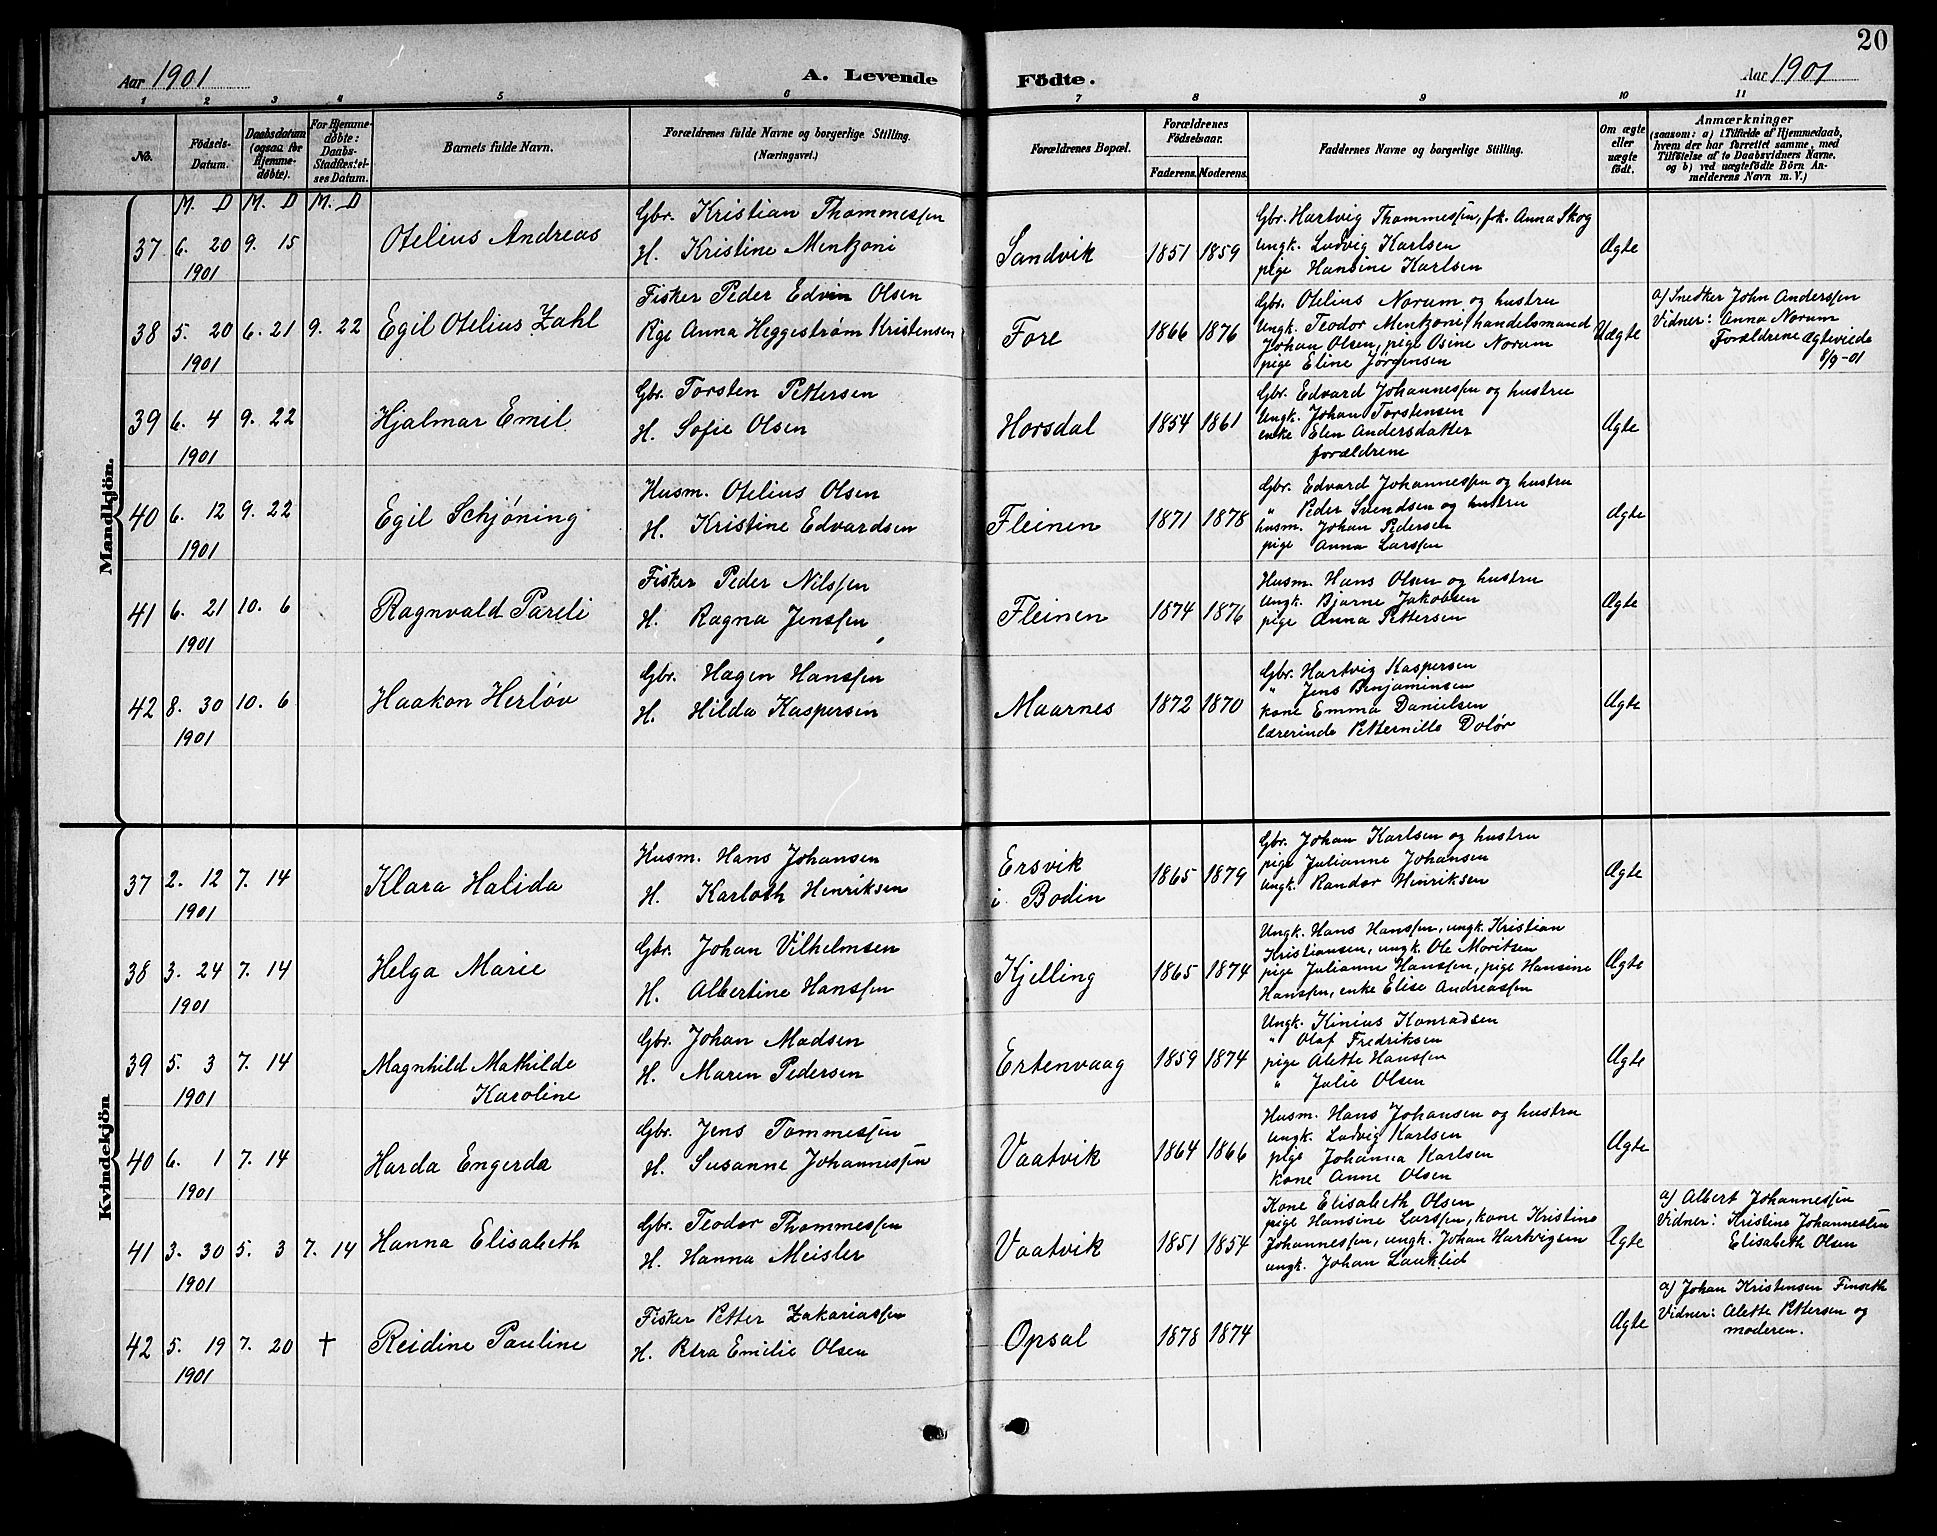 20
Aar 1901
A. Levende
Födte.
Aar 1901
1 2 3 4 5 6 7 8 9 10 11
No.
Födsels-
Datum.
Daabsdatum
(ogsaa for
Hjemme-
døbte).
For Hjemme-
døbte:
Daabs-
Stadfæstel-
ses Datum.
Barnets fulde Navn.
Forældrenes fulde Navne og borgerlige Stilling.
(Næringsvei.)
Forældrenes Bopæl.
Forældrenes
Fødselsaar.
Faderens. Moderens.
Faddernes Navne og borgerlige Stilling.
Om ægte
eller
uægte
født.
Anmærkninger
(saasom: a) i Tilfælde af Hjemmedaab,
hvem der har forrettet samme, med
Tilföielse af to Daabsvidners Navne,
og b) ved uægtefödte Börn An-
melderens Navn m. V.)
Mandkjön.
M. D M. D M. D
37 6. 20 9. 15
1901
Otelius Andreas
Gbr. Kristian Thommessen
H. Kristine Mentzoni
Sandvik
1851 1859
Gbr. Hartvig Thommessen, frk. Anna Skog
ungk. Ludvig Karlsen
pige Hansine Karlsen
Ægte
38 5. 20 6. 21 9. 22
1901
Egil Otelius Zahl
Fisker Peder Edvin Olsen
Pige Anna Heggestrøm Kristensen
Fore
1866 1876
Gbr. Otelius Norum og hustru
Ungk. Teodor Mentzoni, handelsmand
Johan Olsen, pige Osine Norum
pige Eline Jörgensen
Uægte
a/ Snedker John Anderssen
Vidner: Anna Norum
Forældrene ægteviede
8/9-01
39 6. 4 9. 22
1901
Hjalmar Emil
Gbr. Torsten Pettersen
H. Sofie Olsen
Horsdal
1854 1861
Gbr. Edvard Johannessen og hustru
Ungk. Johan Torstensen
enke Elen Andersdatter
forældrene
Ægte
40 6. 12 9. 22
1901
Egil Schjöning
Husm. Otelius Olsen
H. Kristine Edvardsen
Fleinen
1871 1878
Gbr. Edvard Johannessen og hustru
" Peder Svendsen og hustru
husm. Johan Pedersen
pige Anna Larssen
Ægte
41 6. 21 10. 6
1901
Ragnvald Pareli
Fisker Peder Nilssen
H. Ragna Jenssen
Fleinen
1874 1876
Husm. Hans Olsen og hustru
Ungk. Bjarne Jakobsen
pige Anna Pettersen
Ægte
42 8. 30 10. 6
1901
Haakon Herløv
Gbr. Hagen Hanssen
H. Hilda Kaspersen
Maarnes
1872 1870
Gbr. Hartvig Kaspersen
" Jens Benjaminsen
kone Emma Danielsen
lærerinde Petternille Dolör
Ægte
Kvindekjön
37 2. 12 7. 14
1901
Klara Halida
Husm. Hans Johansen
H. Karloth Henriksen
Ersvik
i Bodin
1865 1879
Gbr. Johan Karlsen og hustru
pige Julianne Johansen
ungk. Randor Hinriksen
Ægte
38 3. 24 7. 14
1901
Helga Marie
Gbr. Johan Vilhelmsen
H. Albertine Hanssen
Kjelling
1865 1874
Ungk. Hans Hanssen, ungk. Kristian
Kristiansen, ungk. Ole Moritsen
pige Julianne Hanssen, pige Hansine
Hanssen, enke Elise Andreassen
Ægte
39 5. 3 7. 14
1901
Magnhild Mathilde
Karoline
Gbr. Johan Madsen
H. Maren Pedersen
Ertenvaag
1859 1874
Ungk. Kinius Konradsen
" Olaf Fredriksen
pige Alette Hanssen
" Julie Olsen
Ægte
40 6. 1 7. 14
1901
Harda Engerda
Gbr. Jens Tommessen
H. Susanne Johannessen
Vaatvik
1864 1866
Husm. Hans Johansen og hustru
ungk. Ludvig Karlsen
pige Johanna Karlsen
kone Anne Olsen
Ægte
41 3. 30 5. 3 7. 14
1901
Hanna Elisabeth
Gbr. Teodor Thommessen
H. Hanna Meisler
Vaatvik
1851 1854
Kone Elisabeth Olsen
pige Hansine Larssen, kone Kristine
Johannessen, ungk. Johan Hartvigsen
ungk. Johan Lauklid
Ægte
a/ Albert Johannessen
Vidner: Kristine Johannessen
Elisabeth Olsen
42 5. 19 7. 20 †
1901
Reidine Pauline
Fisker Petter Zakariassen
H. Petra Emilie Olsen
Opsal
1878 1874
Ægte
a/ Johan Kristensen Finseth
Vidner: Alette Pettersen og
moderen.